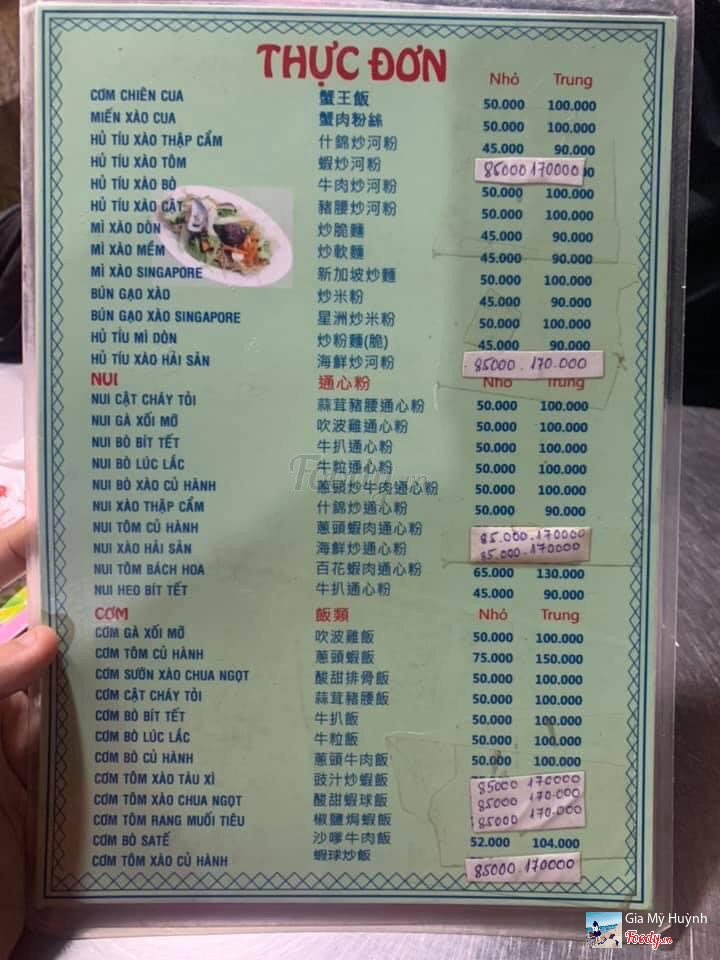 THỰC ĐƠN
Nhỏ Trung
CƠM CHIÊN CUA 蟹王飯 50.000 100.000
MIẾN XÀO CUA 蟹肉粉絲 50.000 100.000
HỦ TÍU XÀO THẬP CẨM 什錦炒河粉 45.000 90.000
HỦ TÍU XÀO TÔM 蝦炒河粉 85000 170000
HỦ TÍU XÀO BÒ 牛肉炒河粉 50.000 100.000
HỦ TÍU XÀO CẬT 豬腰炒河粉 50.000 100.000
MÌ XÀO DÒN 炒脆麵 45.000 90.000
MÌ XÀO MỀM 炒軟麵 45.000 90.000
MÌ XÀO SINGAPORE 新加坡炒麵 50.000 100.000
BÚN GẠO XÀO 炒米粉 45.000 90.000
BÚN GẠO XÀO SINGAPORE 星洲炒米粉 50.000 100.000
HỦ TÍU MÌ DÒN 炒粉麵(脆) 45.000 90.000
HỦ TÍU XÀO HẢI SẢN 海鮮炒河粉 85000.170.000
NUI 通心粉 Nhỏ Trung
NUI CẬT CHÁY TỎI 蒜茸豬腰通心粉 50.000 100.000
NUI GÀ XỐI MỠ 吹波雞通心粉 50.000 100.000
NUI BÒ BÍT TẾT 牛扒通心粉 50.000 100.000
NUI BÒ LÚC LẮC 牛粒通心粉 50.000 100.000
NUI BÒ XÀO CỦ HÀNH 蔥頭炒牛肉通心粉 50.000 100.000
NUI XÀO THẬP CẨM 什錦炒通心粉 50.000 90.000
NUI TÔM CỦ HÀNH 蔥頭蝦肉通心粉 85.000.170000
NUI XÀO HẢI SẢN 海鮮炒通心粉 85.000.170000
NUI TÔM BÁCH HOA 百花蝦肉通心粉 65.000 130.000
NUI HEO BÍT TẾT 牛扒通心粉 45.000 90.000
CƠM 飯類 Nhỏ Trung
CƠM GÀ XỐI MỠ 吹波雞飯 50.000 100.000
CƠM TÔM CỦ HÀNH 蔥頭蝦飯 75.000 150.000
CƠM SƯỜN XÀO CHUA NGỌT 酸甜排骨飯 50.000 100.000
CƠM CẬT CHÁY TỎI 蒜茸豬腰飯 50.000 100.000
CƠM BÒ BÍT TẾT 牛扒飯 50.000 100.000
CƠM BÒ LÚC LẮC 牛粒飯 50.000 100.000
CƠM BÒ CỦ HÀNH 蔥頭牛肉飯 50.000 100.000
CƠM TÔM XÀO TÀU XÌ 豉汁炒蝦飯 85000 170000
CƠM TÔM XÀO CHUA NGỌT 酸甜蝦球飯 85000 170.000
CƠM TÔM RANG MUỐI TIÊU 椒鹽焗蝦飯 85000 170.000
CƠM BÒ SATẾ 沙嗲牛肉飯 52.000 104.000
CƠM TÔM XÀO CỦ HÀNH 蝦球炒飯 85000.170000
Foody.vn
Gia Mỹ Huỳnh
Foody.vn